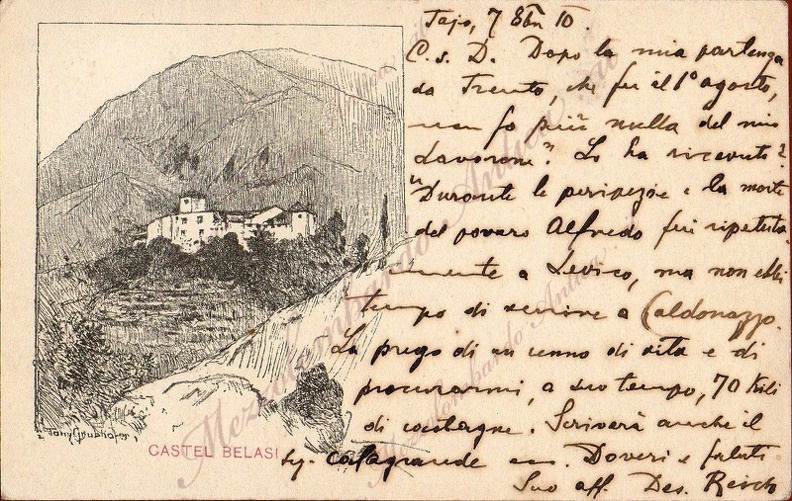 Tajo, 7 8bre 10.
C. s. D. Dopo la mia partenza
da Trento, che fu il 1° agosto,
non so più nulla del mio
Lavorone? Lo ha ricevuto?
Durante le peripezie e la morte
del povero Alfredo fui ripetuta-
mente a Levico, ma non ebbi
tempo di venire a Caldonazzo.
La prego di un cenno di vita e di
procurarmi, a suo tempo, 70 Kili
di castagne. Scriverà anche il
Doveri e saluti
Suo aff. Des. Reich
Tony Grubhofer
CASTEL BELASI
Mezzolombardo Antica
Mezzolombardo Antica